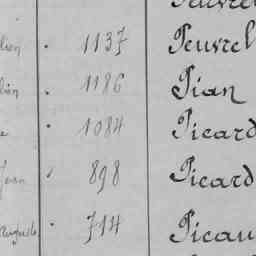 1137 Peuvrel
1186 Pian
1084 Picard
Jean 898 Picard
Auguste 714 Picau